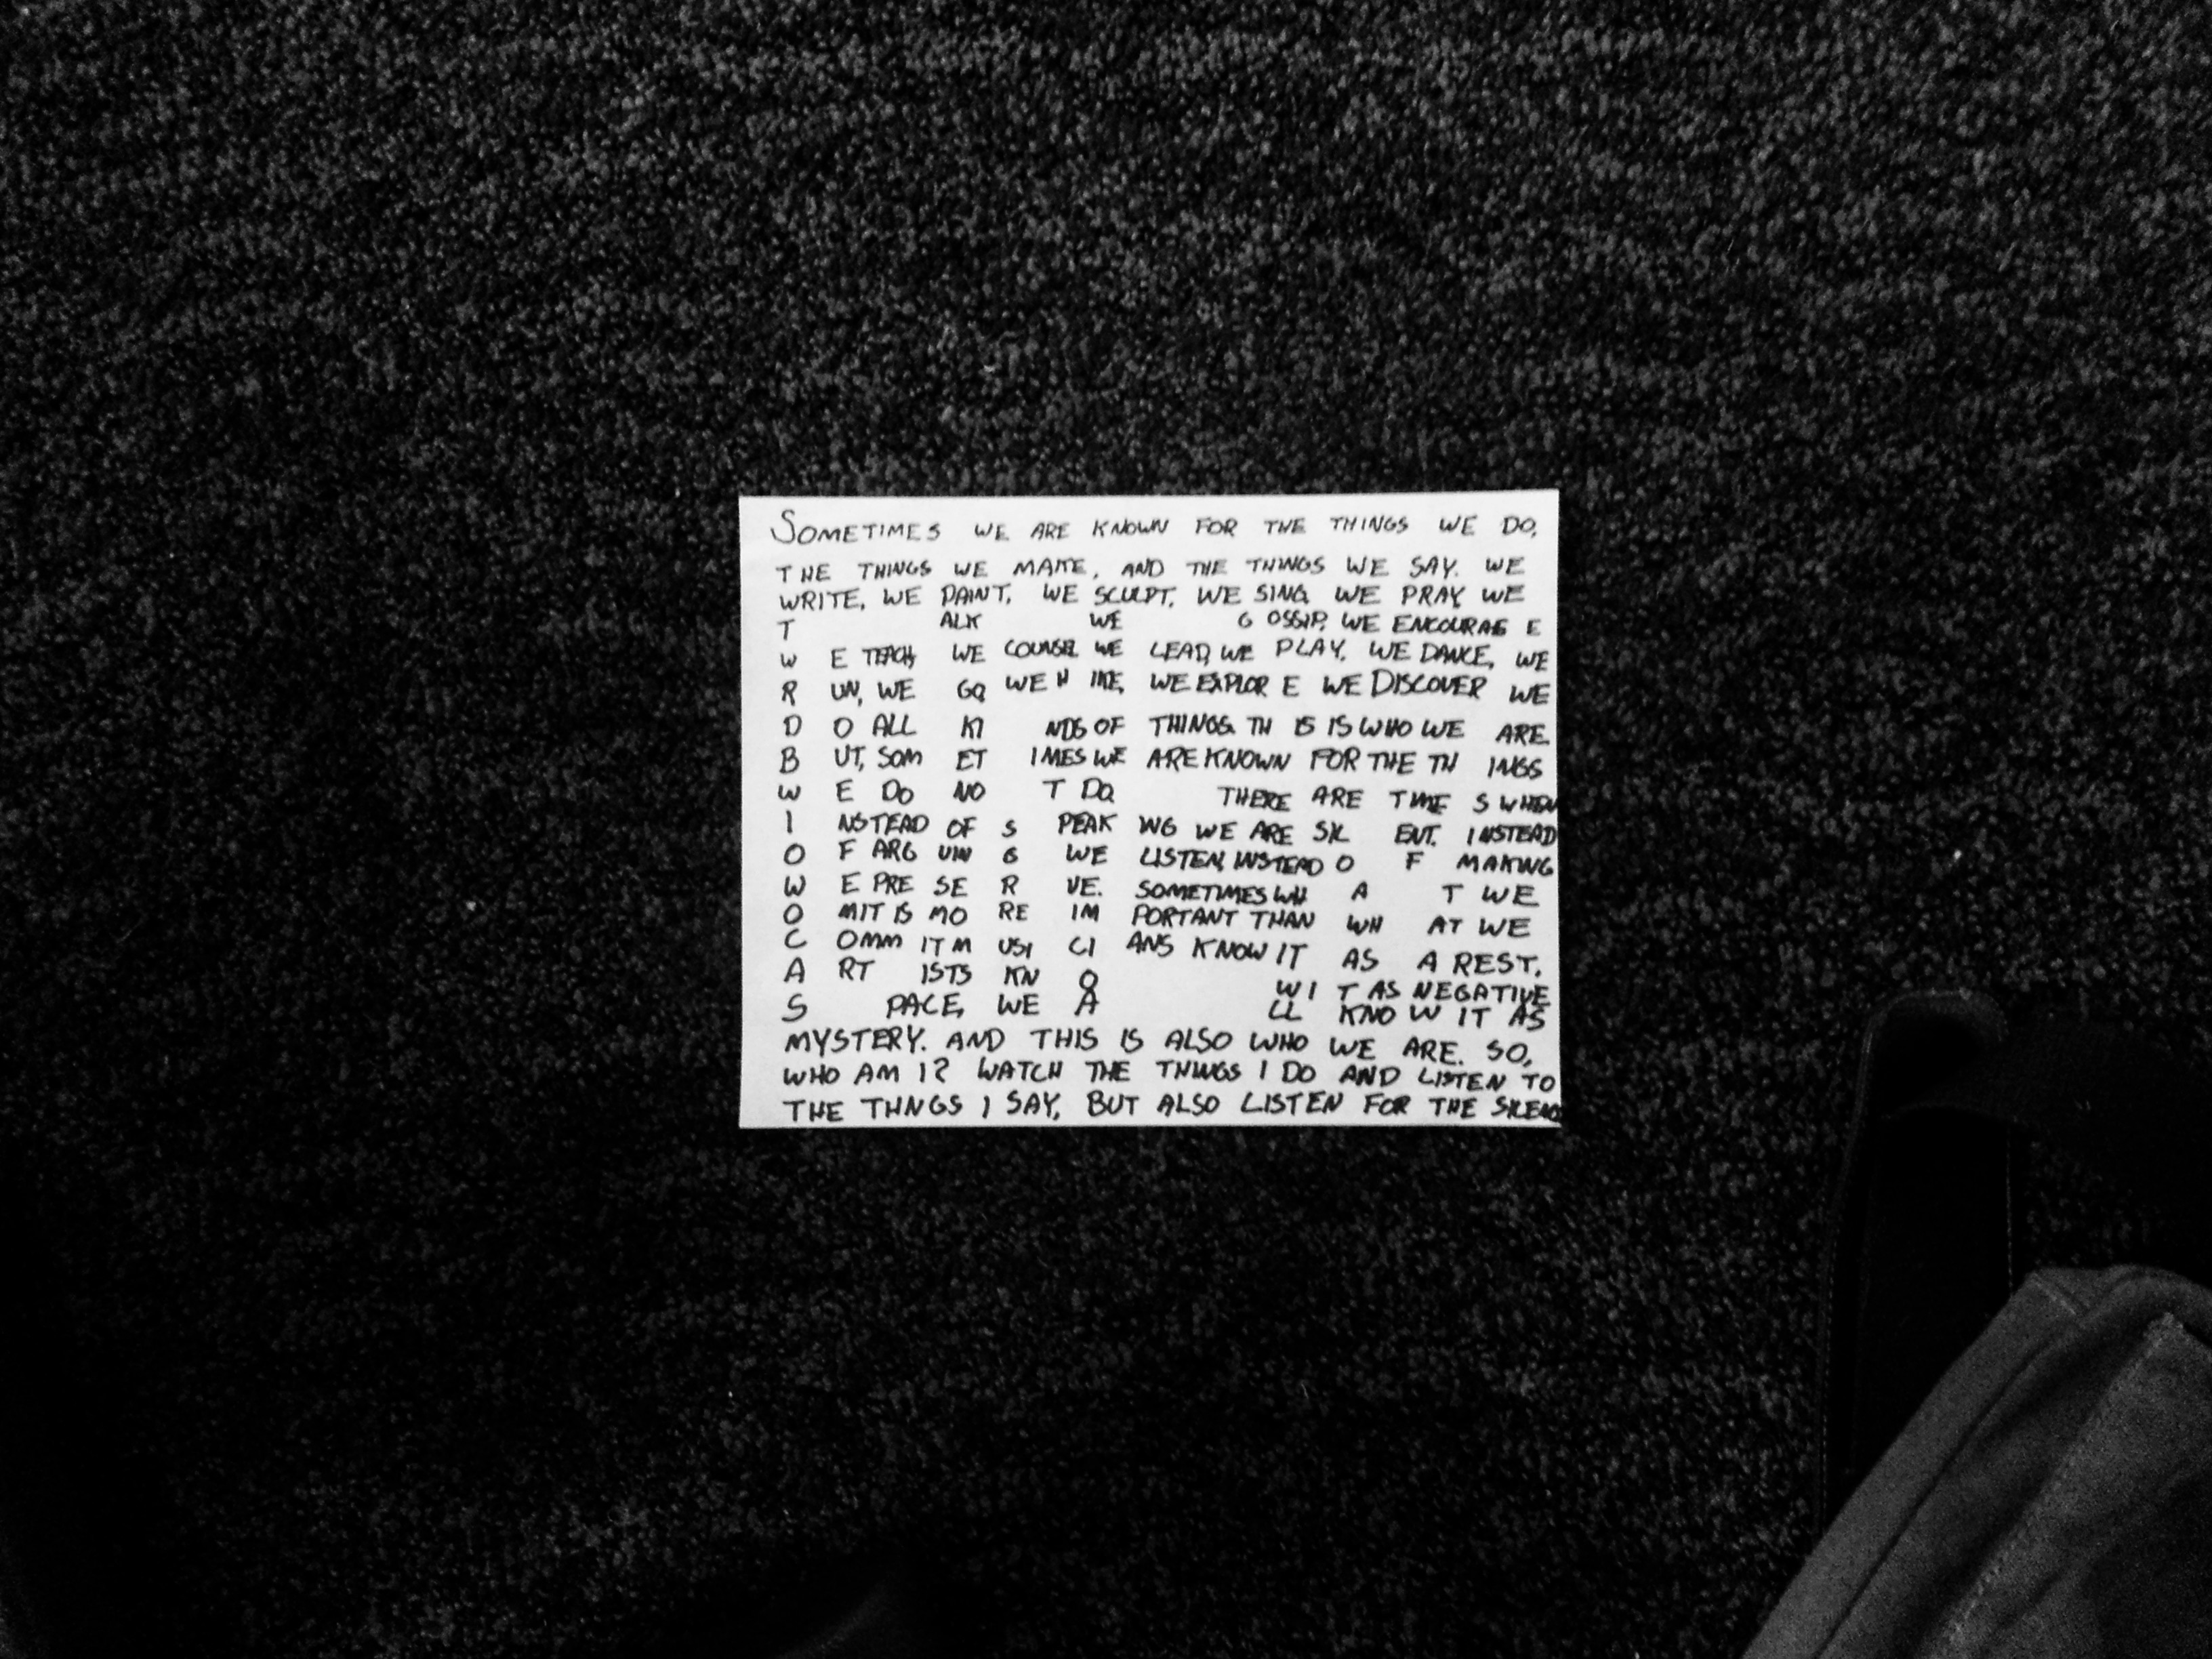 SOMETIMES WE ARE KNOWN FOR THE THINGS WE DO,
THE THINGS WE MAKE, AND THE THINGS WE SAY. WE
WRITE, WE PAINT, WE SCULPT, WE SING, WE PRAY, WE
T ALK WE G OSSIP, WE ENCOURAG E
W E TEACH, WE COUNSEL WE LEAD, WE PLAY, WE DANCE, WE
R UN, WE GO, WE H IKE, WE EXPLOR E WE DISCOVER WE
D O ALL KI NDS OF THINGS. TH IS IS WHO WE ARE.
B UT, SOM ET IMES WE ARE KNOWN FOR THE TH INGS
W E DO NO T DO. THERE ARE TIME S WHEN
I NSTEAD OF S PEAK ING WE ARE SIL ENT. INSTEAD
O F ARG UIN G WE LISTEN, INSTEAD O F MAKING
W E PRE SE R VE. SOMETIMES WH A T WE
O MIT IS MO RE IM PORTANT THAN WH AT WE
C OMM IT M USI CI ANS KNOW IT AS A REST,
A RT ISTS KN O W I T AS NEGATIVE
S PACE, WE A LL KNO W IT AS
MYSTERY. AND THIS IS ALSO WHO WE ARE. SO,
WHO AM I? WATCH THE THINGS I DO AND LISTEN TO
THE THNGS I SAY, BUT ALSO LISTEN FOR THE SILENCE